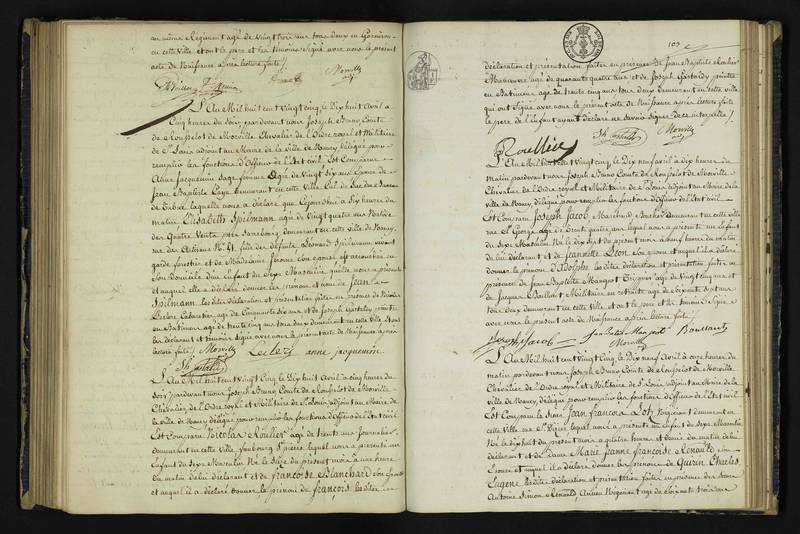 au même Régiment agé de Vingt trois ans tous deux en Garnison
en cette Ville, et ont le pere et les témoins signé avec nous le présent
acte de Naissance après lecture faite /.
Morville
L'An Mil huit cent Vingt cinq, le Dix huit Avril à
Cinq heures du soir, pardevant nous Joseph Bruno Comte
de Morville Chevalier de l'Ordre royal et Militaire
de St Louis adjoint au Maire de la Ville de Nancy délégué pour
remplir les fonctions d'Officier de l'Etat civil Est Comparue
Anne Jacquemin Sage femme agée de Vingt six ans Epouse de
Jean Baptiste demeurant en cette Ville
laquelle nous a déclaré que Cejourd'hui à Six heures du
matin Elisabeth Spielmann agée de Vingt quatre ans Native
des Quatre Vents près Sarrebourg demeurant en cette Ville de Nancy,
rue des Artisans No 41, fille de défunts Léonard Spielmann vivant
garde forestier et de Madelaine son épouse est accouchée en
Son Domicile d'un Enfant du Sexe Masculin, quelle nous a présenté
et auquel elle a déclaré donner les prénom et nom de Jean
Spielmann les dites déclaration et présentation faites en présence de Nicolas
Leclerc Cabaretier agé de Cinquante six ans et de Joseph Gastaldy peintre
en Batimens agé de trente cinq ans tous deux demeurant en cette Ville
la déclarante et témoins signé avec nous le présent acte de Naissance après
lecture faite /. Morville Leclerc anne jacquemin
L'An Mil huit cent Vingt Cinq le Dix huit Avril à cinq heures du
soir pardevant nous Joseph Bruno Comte de Morville
Chevalier de l'Ordre royal et Militaire de St Louis adjoint au Maire de
la Ville de Nancy délégué pour remplir les fonctions d'Officier de l'Etat civil
Est Comparu Nicolas Roullier agé de trente ans Journalier
demeurant en cette Ville, faubourg St pierre lequel nous a présenté un
Enfant du Sexe Masculin Né le Seize du présent mois à une heure
du matin de lui déclarant et de françoise Blanchard son Epouse
et auquel il a déclaré donner le prénom de françois les dites
103
déclaration et présentation faites en présence de Jean Baptiste
Manoeuvre agé de quarante quatre ans et de Joseph Gastaldy peintre
en Batimens agé de trente cinq ans tous deux demeurant en cette ville
qui ont Signé avec nous le présent acte de Naissance après lecture faite
le pere de l'Enfant ayant déclaré ne savoir signer de ce interpellé /.
Morville
Roullier
L'An Mil huit cent Vingt cinq, le Dix neuf avril à dix heures du
matin pardevant nous Joseph Bruno Comte de Morville
Chevalier de l'Ordre royal et Militaire de St Louis adjoint au Maire de la
Ville de Nancy, délégué pour remplir les fonctions d'Officier de l'Etat civil
Est Comparu Joseph Jacob Marchand demeurant en cette ville
rue St George agé de trente quatre ans lequel nous a présenté un Enfant
du Sexe Masculin Né le dix sept du présent mois à neuf heures du matin
de lui déclarant et de Jeannette Leon son épouse et auquel il a déclaré
donner le prénom d'Adolphe les dites déclaration et présentation faites en
présence de Jean Baptiste Mangeot agé de Vingt cinq ans et
de Jacques Boussard Militaire en retraite agé de Soixante et
tous deux demeurant en cette Ville, et ont le pere et les témoins Signé
avec nous le présent acte de Naissance après lecture faite /.
Joseph Jacob Jean Batis Mangeot Boussard
Morville
L'An Mil huit cent Vingt Cinq le Dix neuf Avril à onze heures du
matin pardevant nous Joseph Bruno Comte de Morville
Chevalier de l'Ordre royal et Militaire de St Louis adjoint au Maire de la
Ville de Nancy, délégué pour remplir les fonctions d'Officier de l'Etat civil
Est Comparu le Sieur Jean francois Loth demeurant en
cette Ville rue St Dizier lequel nous a présenté un Enfant du Sexe Masculin
Né le dix huit du présent mois à quatre heures et demie du matin de lui
déclarant et de Dame Marie Jeanne françoise Renauld son
Epouse et auquel il a déclaré donner les prénoms de Quirin Charles
Eugene les dites déclaration et présentation faites en présence des Sieurs
Antoine Simon Renauld, Ancien Négociant agé de Soixante trois ans